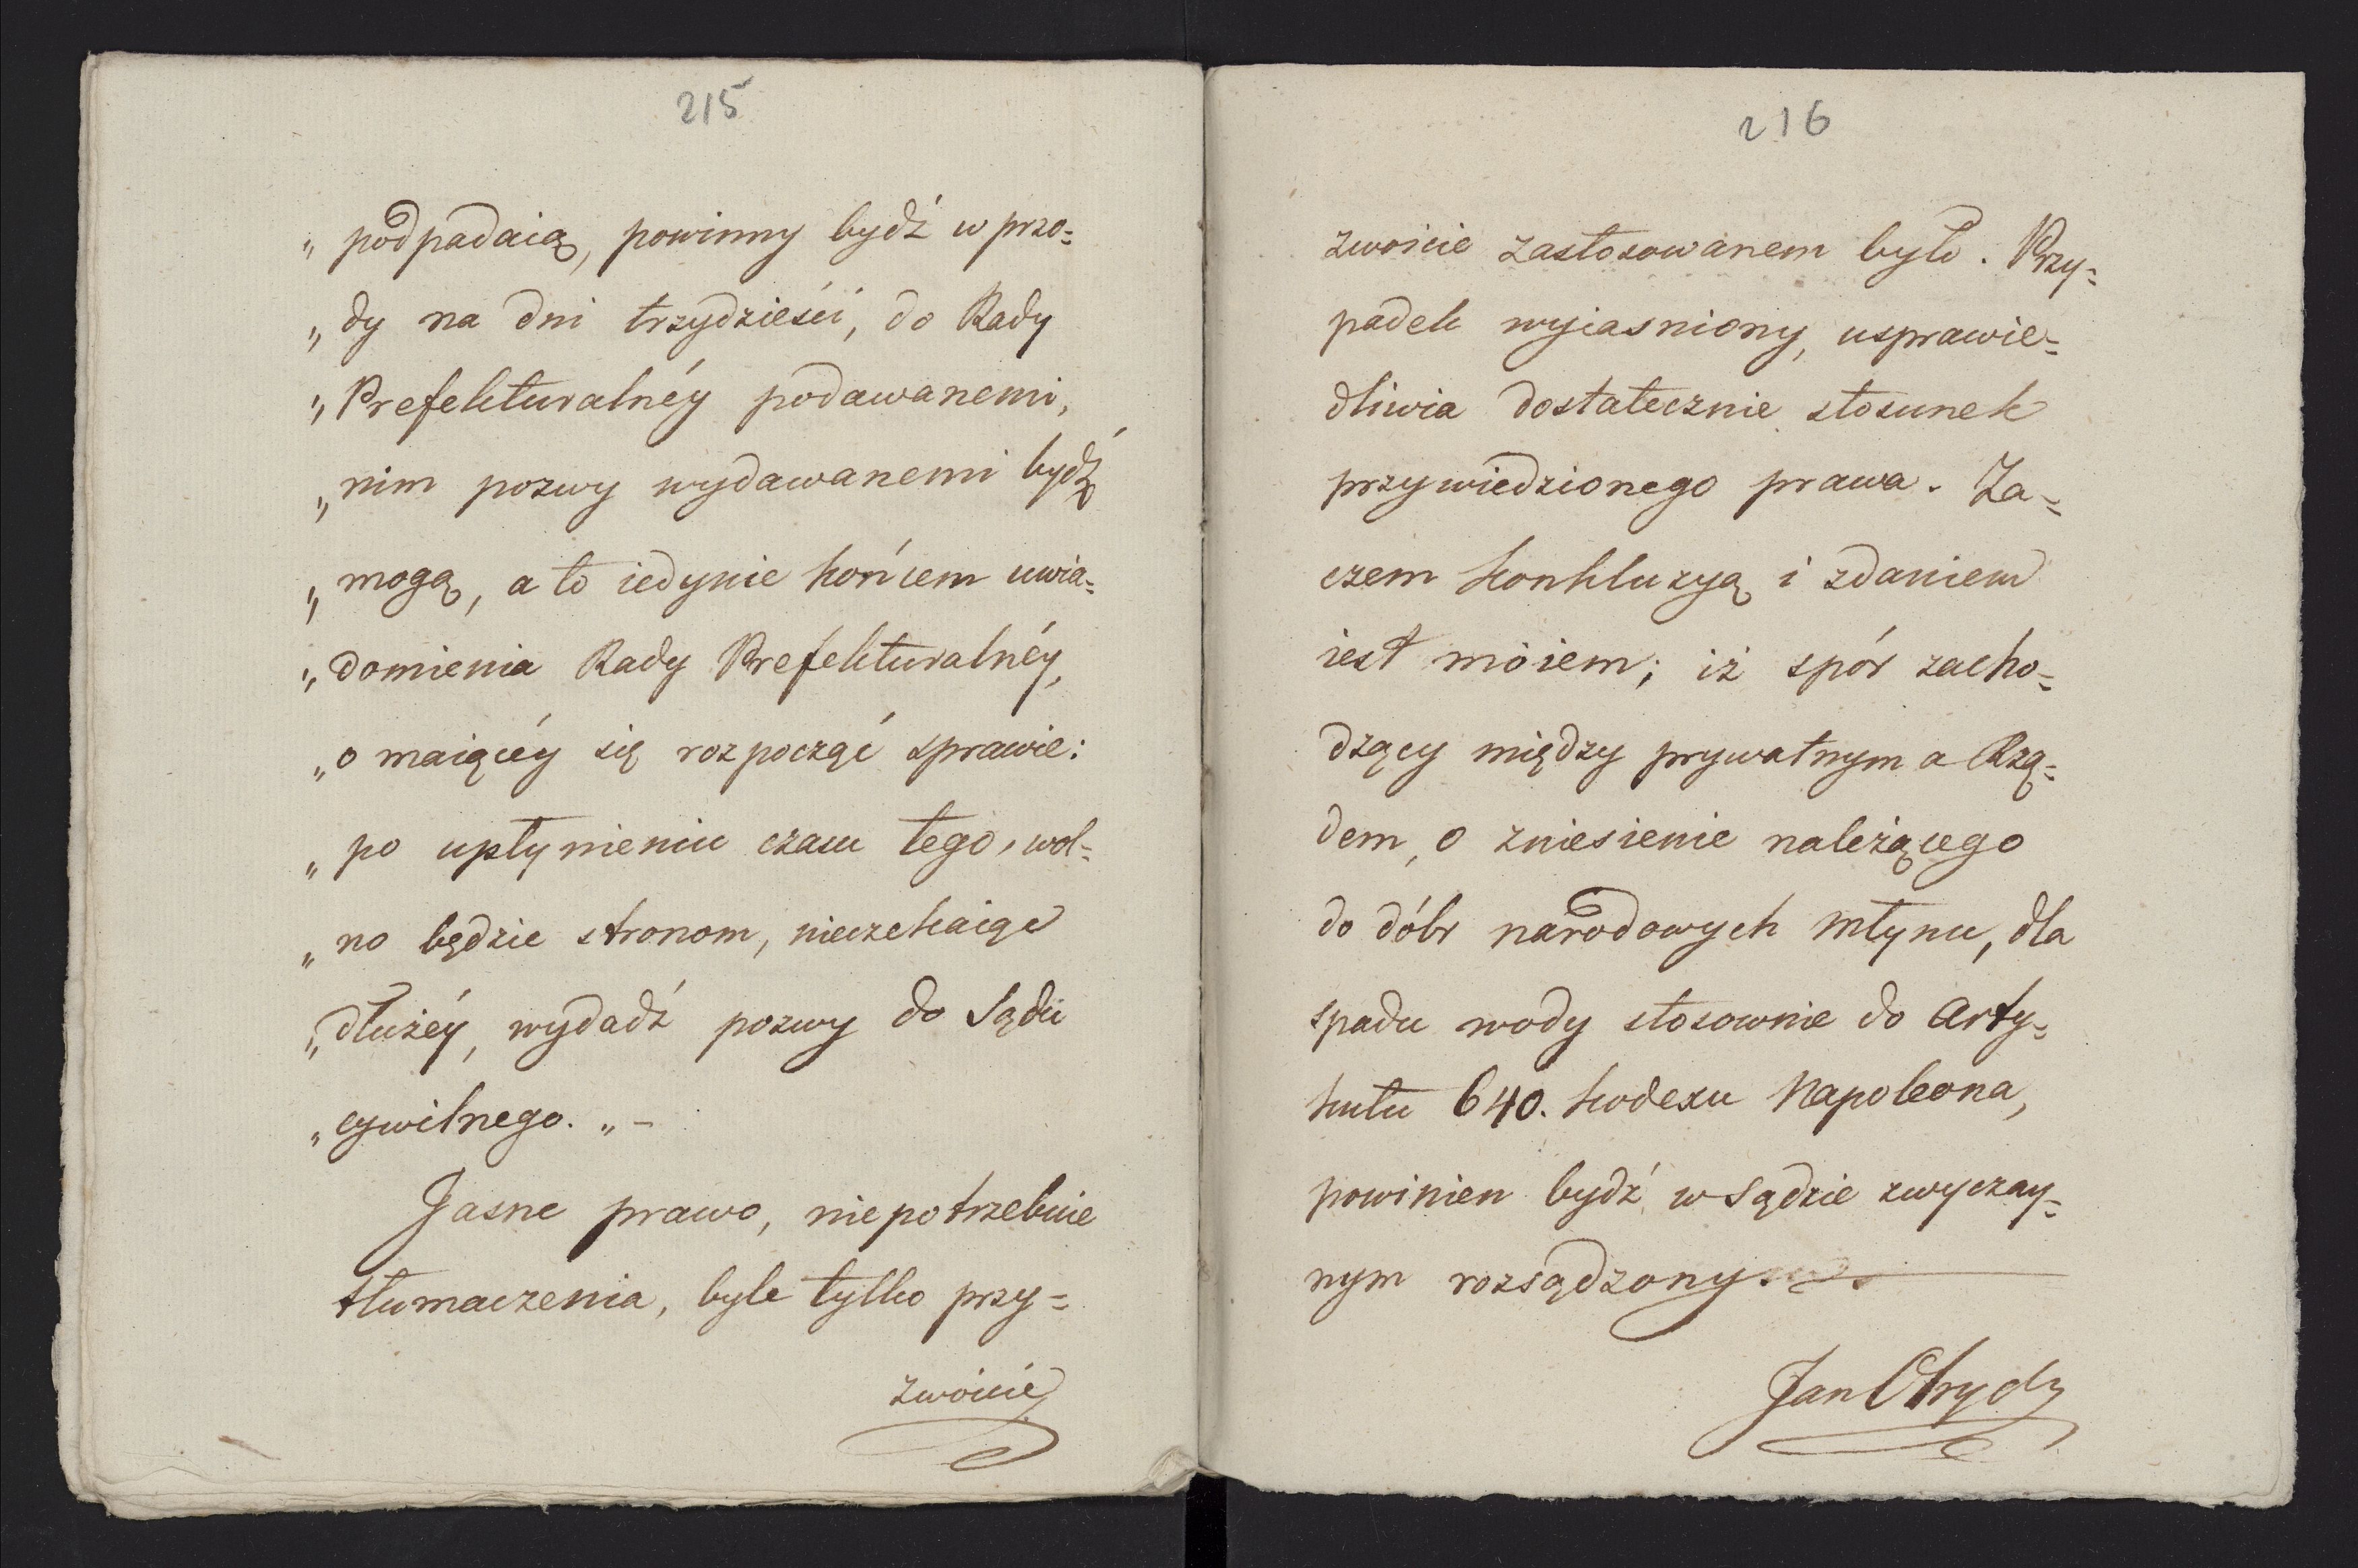 215
„ podpadaią, powinny bydź w przo=
„ dy na dni trzydzieści, do Rady
„ Prefekturalnéy podawanemi,
„ nim pozwy wydawanemi bydź
„ mogą, a to iedynie końcem uwia=
„ domienia Rady Prefekturalnéy,
„ o maiącéy się rozpocząć sprawie:
„ po upłynieniu czasu tego, wol=
„ no będzie stronom, nieczekaiąc
„ dłużéy, wydadź pozwy do Sądu
„ cywilnego. „ –
Jasne prawo, niepotrzebuie
tłumaczenia, byle tylko przy=
zwoicie
216
zwoicie zastosowanem było. Przy=
padek wyiasniony, usprawie=
dliwia dostatecznie stosunek
przywiedzionego prawa. Za=
czem konkluzyą i zdaniem
iest moiem; iż spór zacho=
dzący między prywatnym a Rzą=
dem, o zniesienie należącego
do dóbr narodowych młynu, dla
spadu wody stosownie do Arty=
kułu 640. kodexu Napoleona,
powinien bydź w Sądzie zwyczay=
nym rozsądzony.
Jan